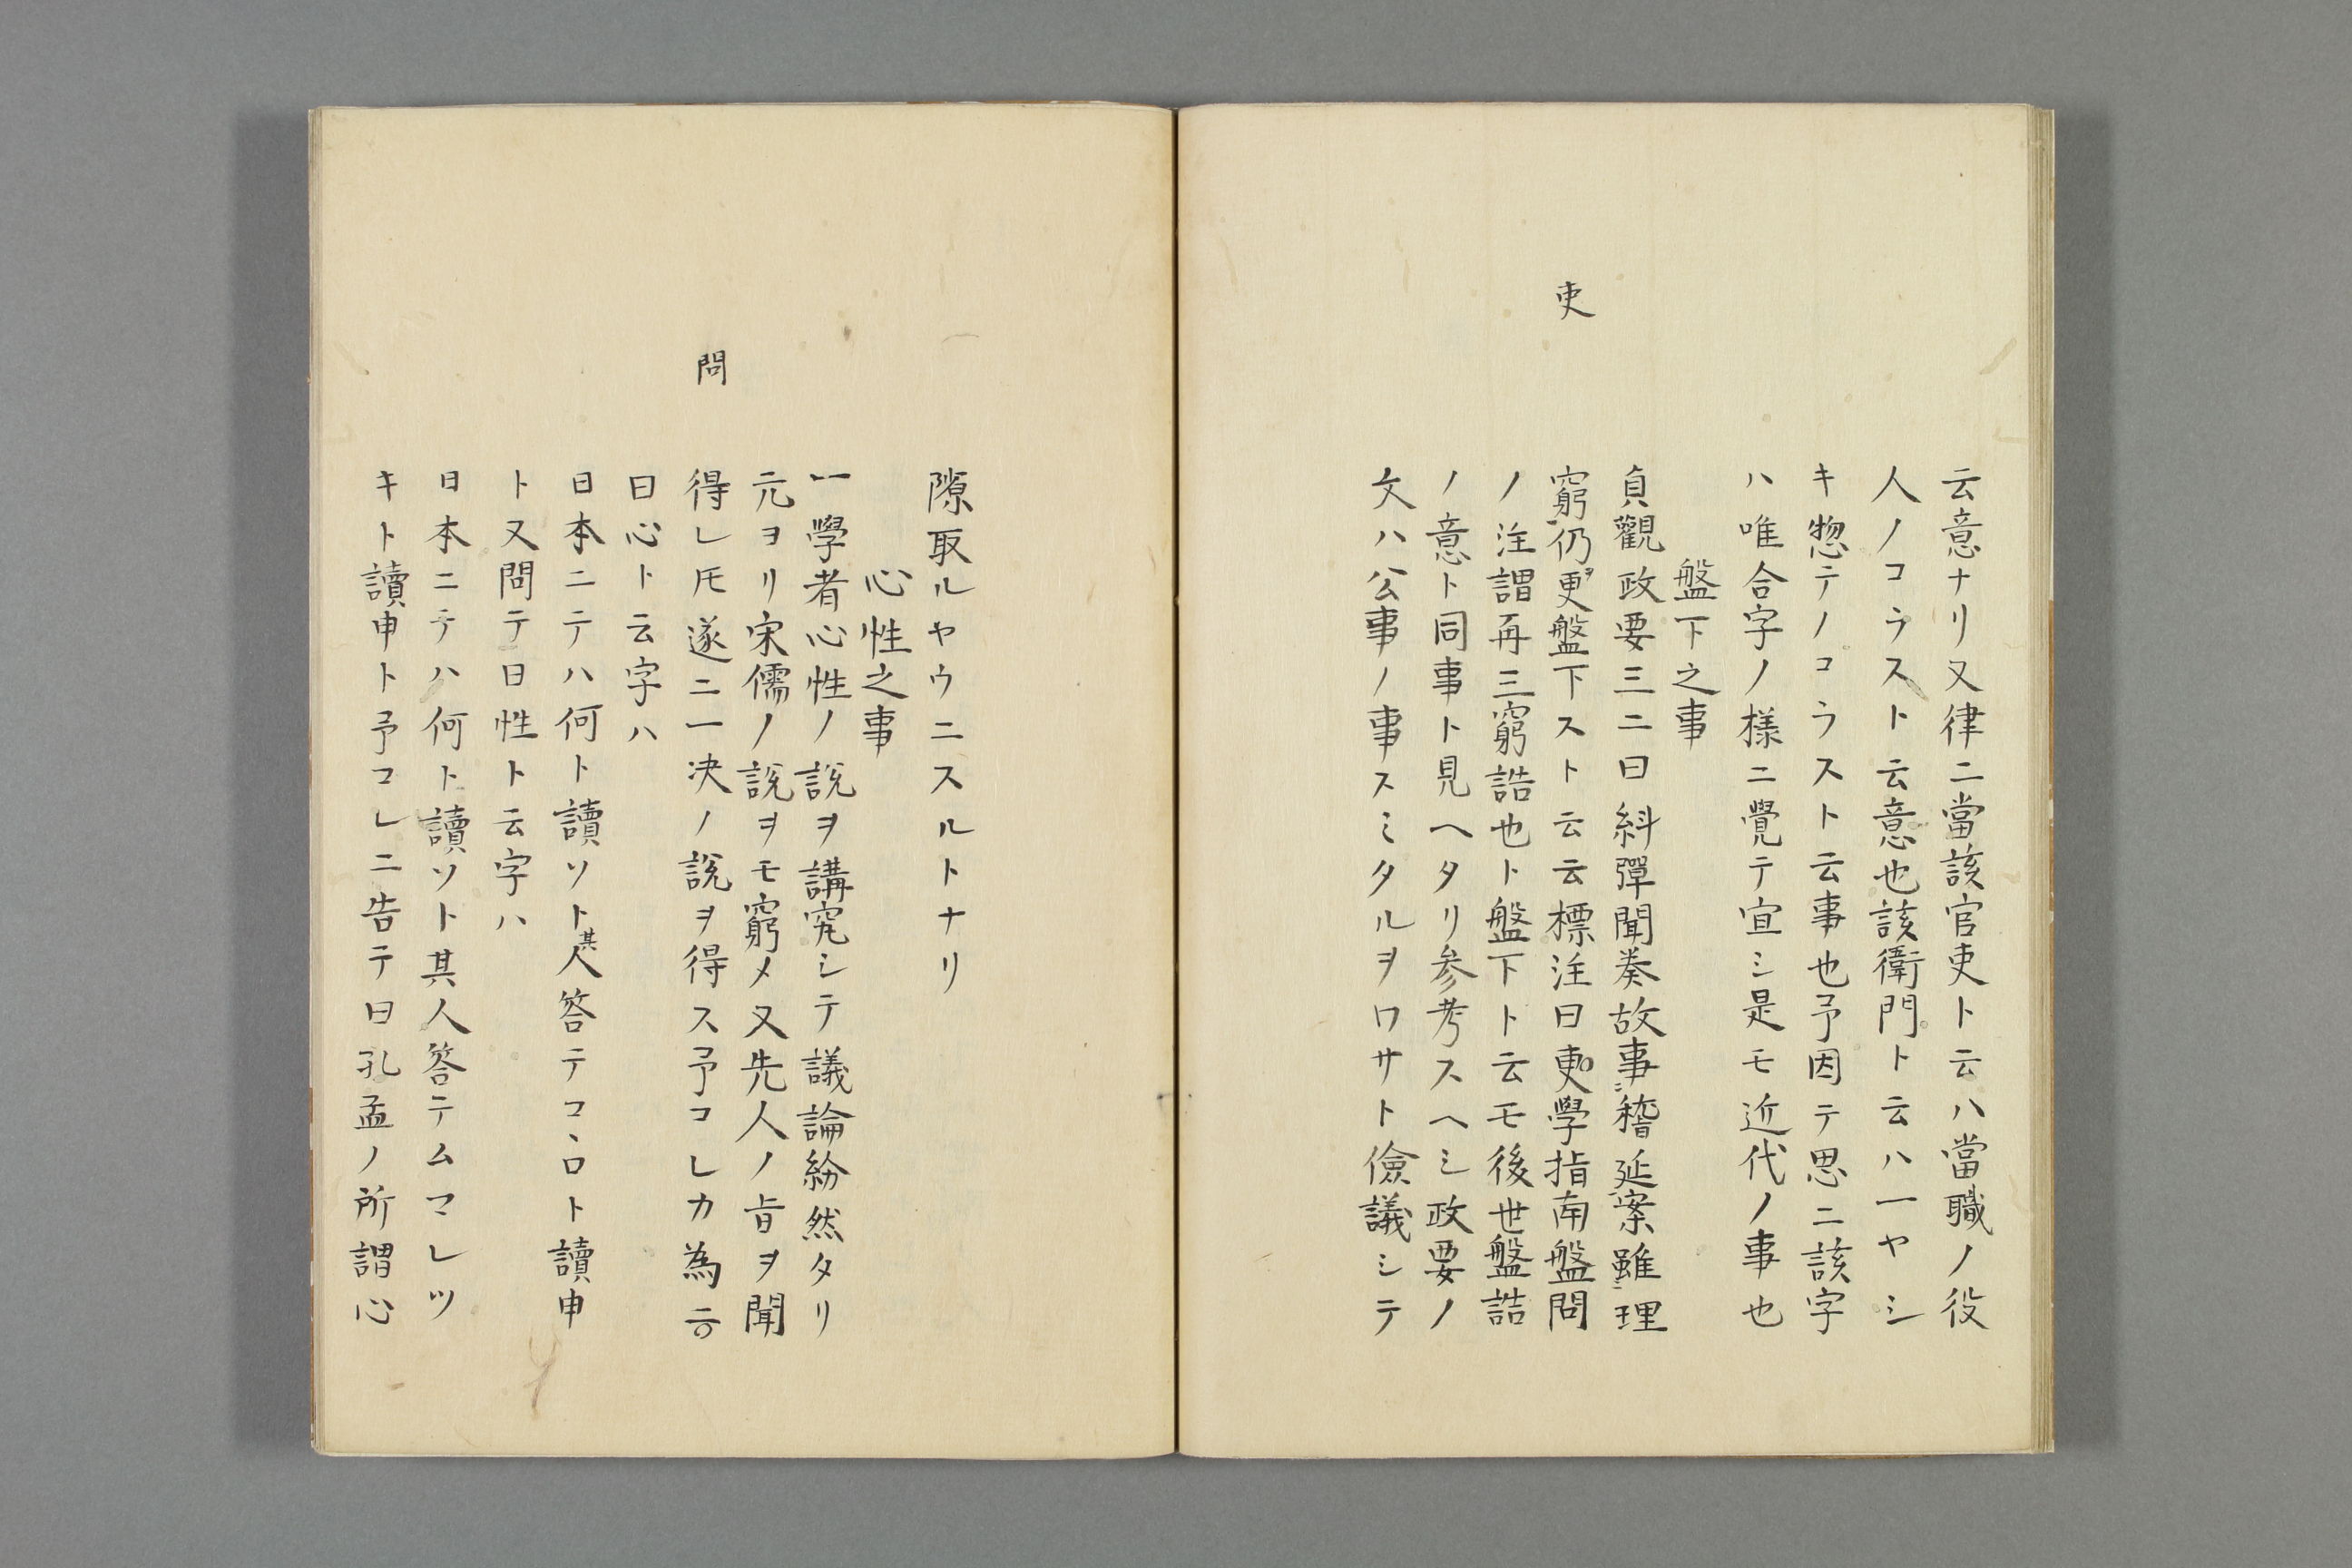 云意ナリ又律ニ當該官吏ト云ハ當職ノ役
人ノコラスト云意也該衛門ト云ハ一ヤシ
キ惣テノコラスト云事也予因テ思ニ該字
ハ唯合字ノ様ニ覺テ宣シ是モ近代ノ事也
盤下之事
貞觀政要三ニ曰糾彈聞奏故事稽延案雖理
吏
窮仍更ヲ盤下スト云云標注曰吏學指南盤問
ノ注謂再三窮誥也ト盤下ト云モ後世盤詰
ノ意ト同事ト見ヘタリ参考スヘシ政要ノ
文ハ公事ノ事スミタルヲワサト儉議シテ
隙取ルヤウニスルトナリ
心性之事
一學者心性ノ說ヲ講究シテ議論紛然タリ
元ヨリ宋儒ノ說ヲモ窮メ又先人ノ旨ヲ聞
問
得レ𪜈遂ニ一决ノ說ヲ得ス予コレカ為ニ
曰心ト云字ハ
日本ニテハ何ト讀ソト其人答テコヽロト讀申
ト又問テ曰性ト云字ハ
日本ニテハ何ト讀ソト其人答テムマレツ
キト讀申ト予コレニ告テ曰孔孟ノ所謂心